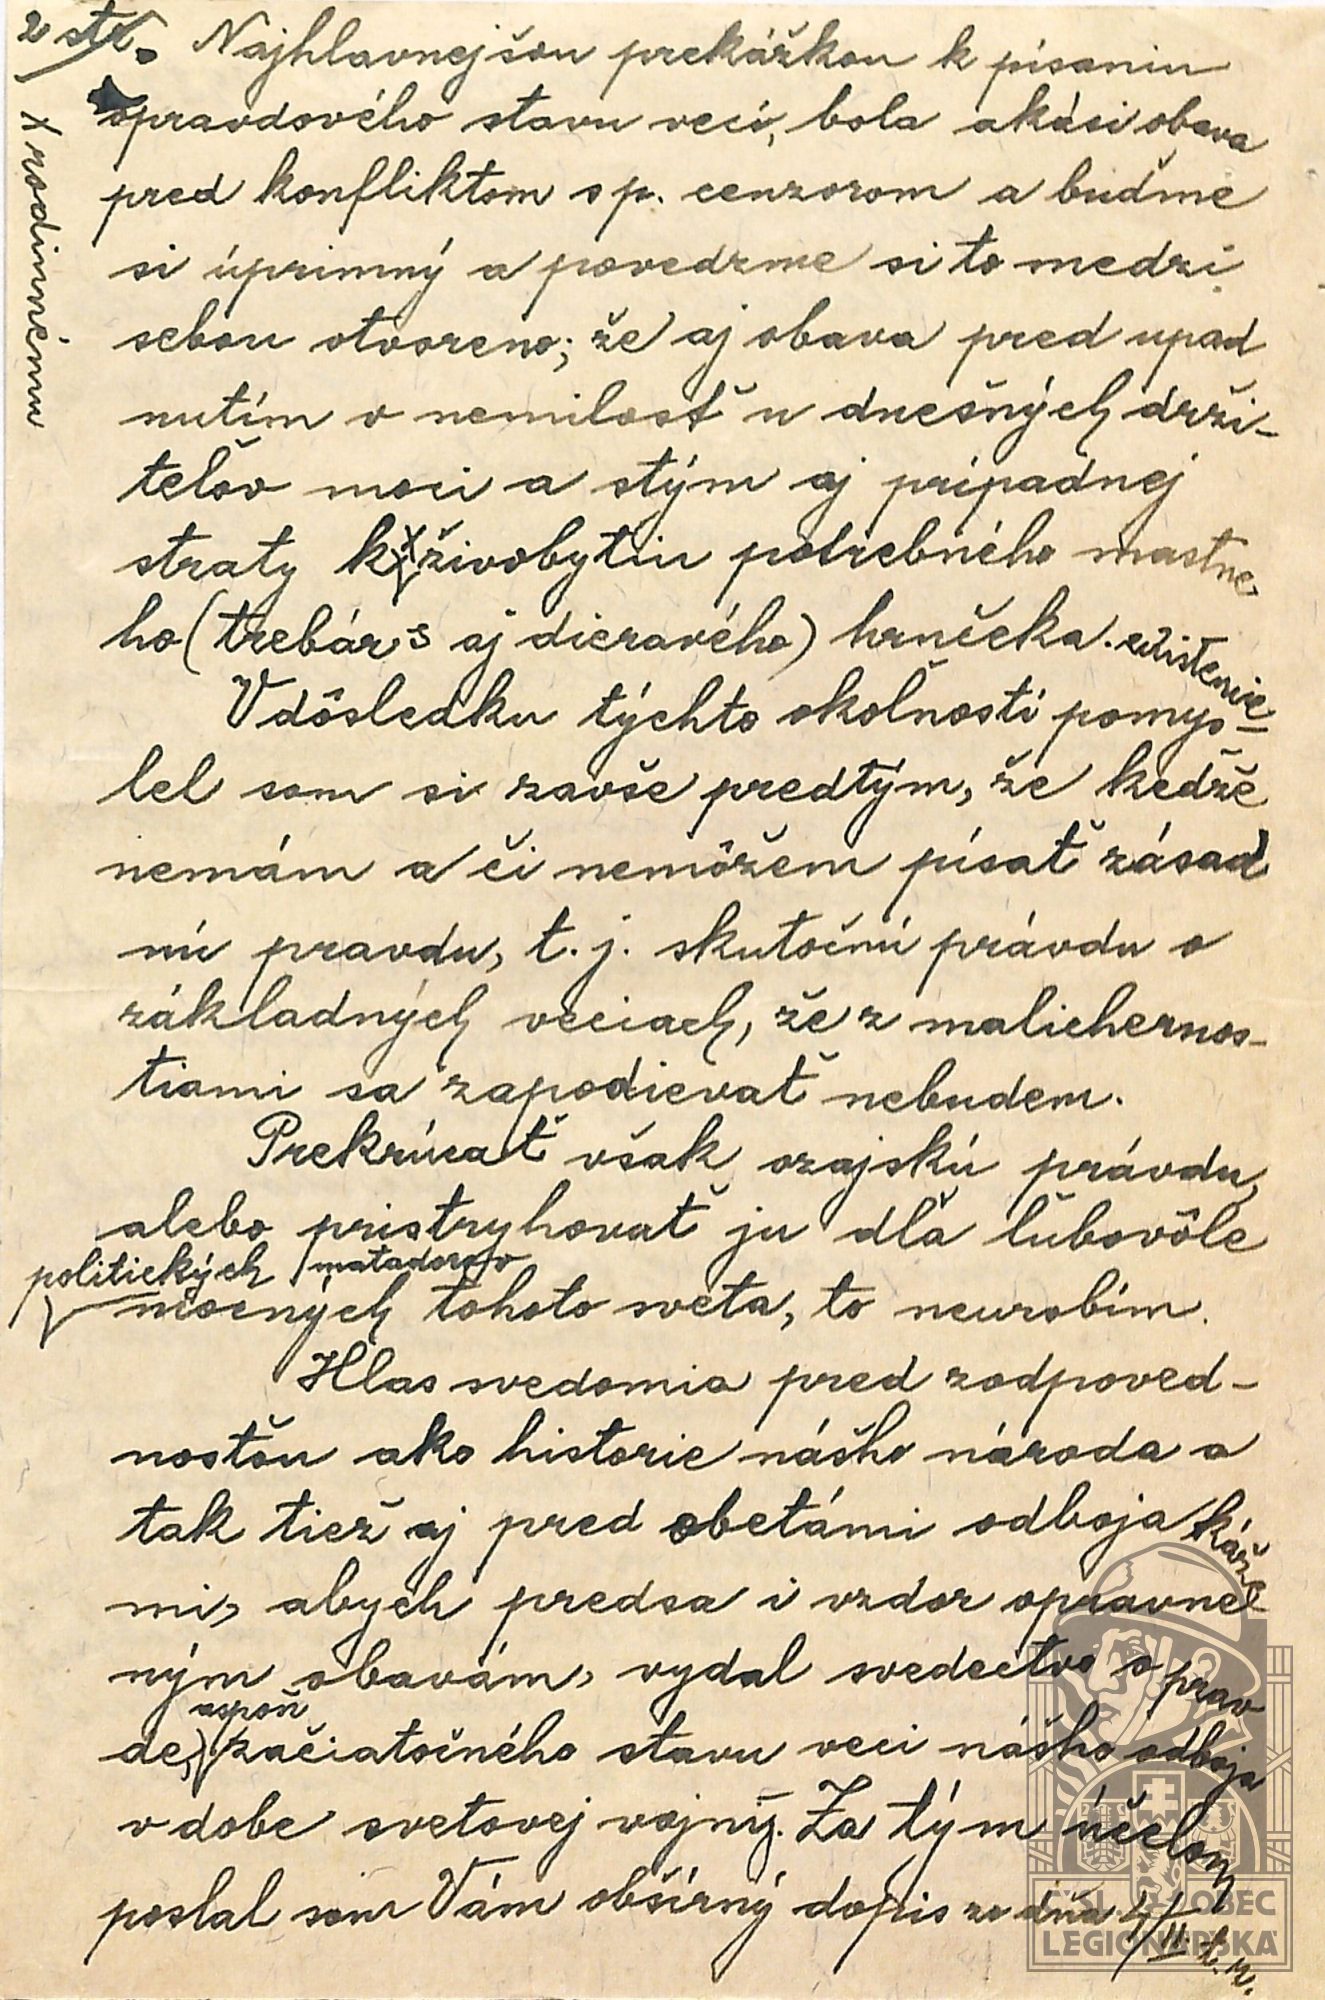 2 str. Najhlavnejšou prekážkou k písaniu
opravdového stavu vecí, bola akási obava
pred konfliktom s p. cenzorom a buďme
si úprimný a povedzme si to medzi
sebou otvoreno; že aj obava pred upad
nutím v nemilosť u dnešných drži-
teľov moci a stým aj prípadnej
straty k x živobytiu potrebného mastne
ho (trebárs aj dieravého) hrnčeka.
x rodinnému
V dôsledku týchto okolností pomys-
lel som si zavše predtým, že kedže
nemám a či nemôžem písať zásad
nú pravdu, t. j. skutočnú právdu o
základných veciach, že z malichernos-
tiami sa zapodievať nebudem.
Prekrúcať však ozajskú právdu,
alebo pristryhovať ju dľa ľubovôle
politických matadorov
mocných tohoto sveta, to neurobím.
Hlas svedomia pred zodpoved-
nosťou ako historie nášho národa a
tak tiež aj pred obetámi odboja káže
mi, abych predsa i vzdor opravne-
ným obavám, vydal svedectvo o prav
de, aspoň začiatočného stavu veci nášho odboja
v dobe svetovej vojny. Za tým účelom
poslal som Vám obšírný dopis zo dňa 4/II. t. r.
ČSL OBEC
LEGIONÁŘSKÁ